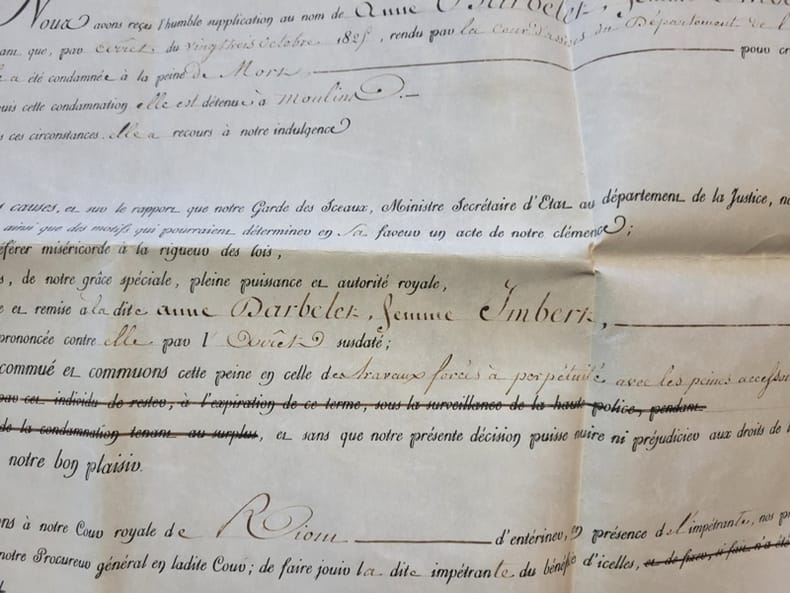 Nous avons reçu l'humble supplication au nom de Anne Barbelet, femme Imbert
que, par arrêt du vingt trois octobre 1825, rendu par la cour d'assises du Département de l'
a été condamnée à la peine de Mort pour cr
cette condamnation elle est détenue à Moulins
ces circonstances elle a recours à notre indulgence
causes, et sur le rapport que notre Garde des Sceaux, Ministre Secrétaire d'Etat au département de la Justice, no
ainsi que des motifs qui pourraient déterminer en sa faveur un acte de notre clémence ;
éférer miséricorde à la rigueur des lois,
s, de notre grâce spéciale, pleine puissance et autorité royale,
et remise à la dite anne Barbelet, femme Imbert,
prononcée contre elle par l'arrêt susdaté ;
commué et commuons cette peine en celle des travaux forcés à perpétuité avec les peines accessoi
par cet individu de rester, à l'expiration de ce terme, sous la surveillance de la haute police, pendant
de la condamnation tenant au surplus, et sans que notre présente décision puisse nuire ni préjudicier aux droits de l
notre bon plaisir.
ns à notre Cour royale de Riom d'entériner, en présence de l'impétrante, nos p
notre Procureur général en ladite Cour ; de faire jouir la dite impétrante du bénéfice d'icelles, et de fixer, si fait n'a été